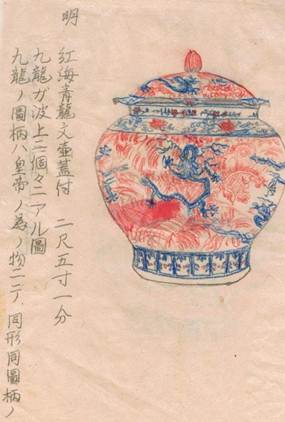 明
紅海青龍文壷蓋付 二尺五寸一分
九龍ガ波上ニ個々ニアル圖
九龍ノ圖柄ハ皇帝ノ為ノ物ニテ同形同圖柄ノ